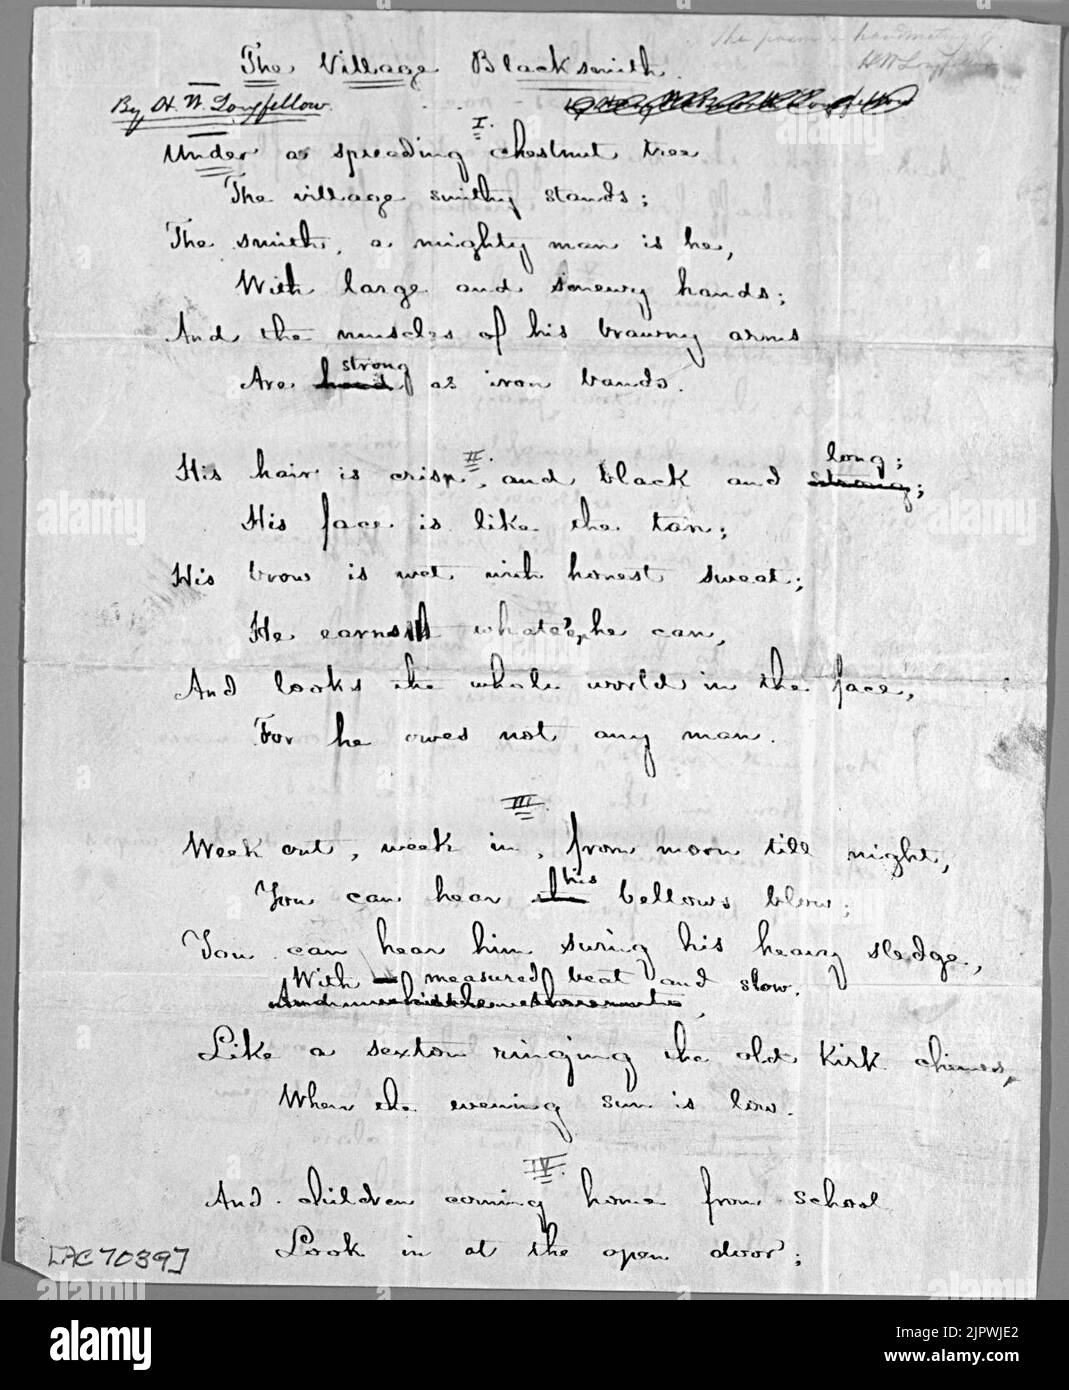 The poem in handwriting of
H W Longfellow
The Village Blacksmith.
By H. W. Longfellow.
I.
Under a spreading chestnut tree
The village smithy stands;
The smith, a mighty man is he,
With large and sinewy hands;
And the muscles of his brawny arms
strong
Are hard as iron bands.
II.
long;
His hair is crisp, and black and strong;
His face is like the tan;
His brow is wet with honest sweat;
He earns whate'er he can,
And looks the whole world in the face,
For he owes not any man.
III.
Week out, week in, from morn till night,
his
You can hear the bellows blow;
You can hear him swing his heavy sledge,
With measured beat and slow,
Like a sexton ringing the old kirk chimes,
When the evening sun is low.
IV.
And children coming home from school
Look in at the open door;
[AC7039]
alamy
Image ID: 2JPWJE2
www.alamy.com